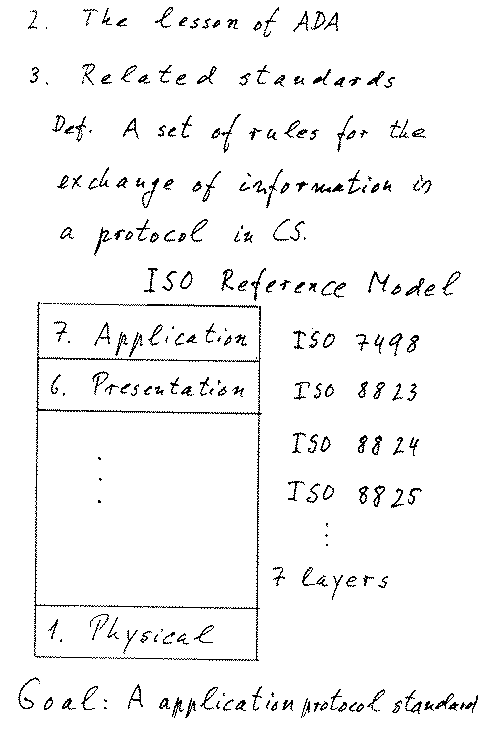 2. The lesson of ADA
3. Related standards
Def. A set of rules for the
exchange of information is
a protocol in CS.
ISO Reference Model
7. Application ISO 7498
6. Presentation ISO 8823
ISO 8824
ISO 8825
7 layers
1. Physical
Goal: A application protocol standard